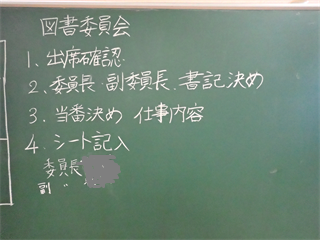 図書委員会
1、出席確認
2、委員長、副委員長、書記決め
3、当番決め 仕事内容
4、シート記入
委員長
副 〃